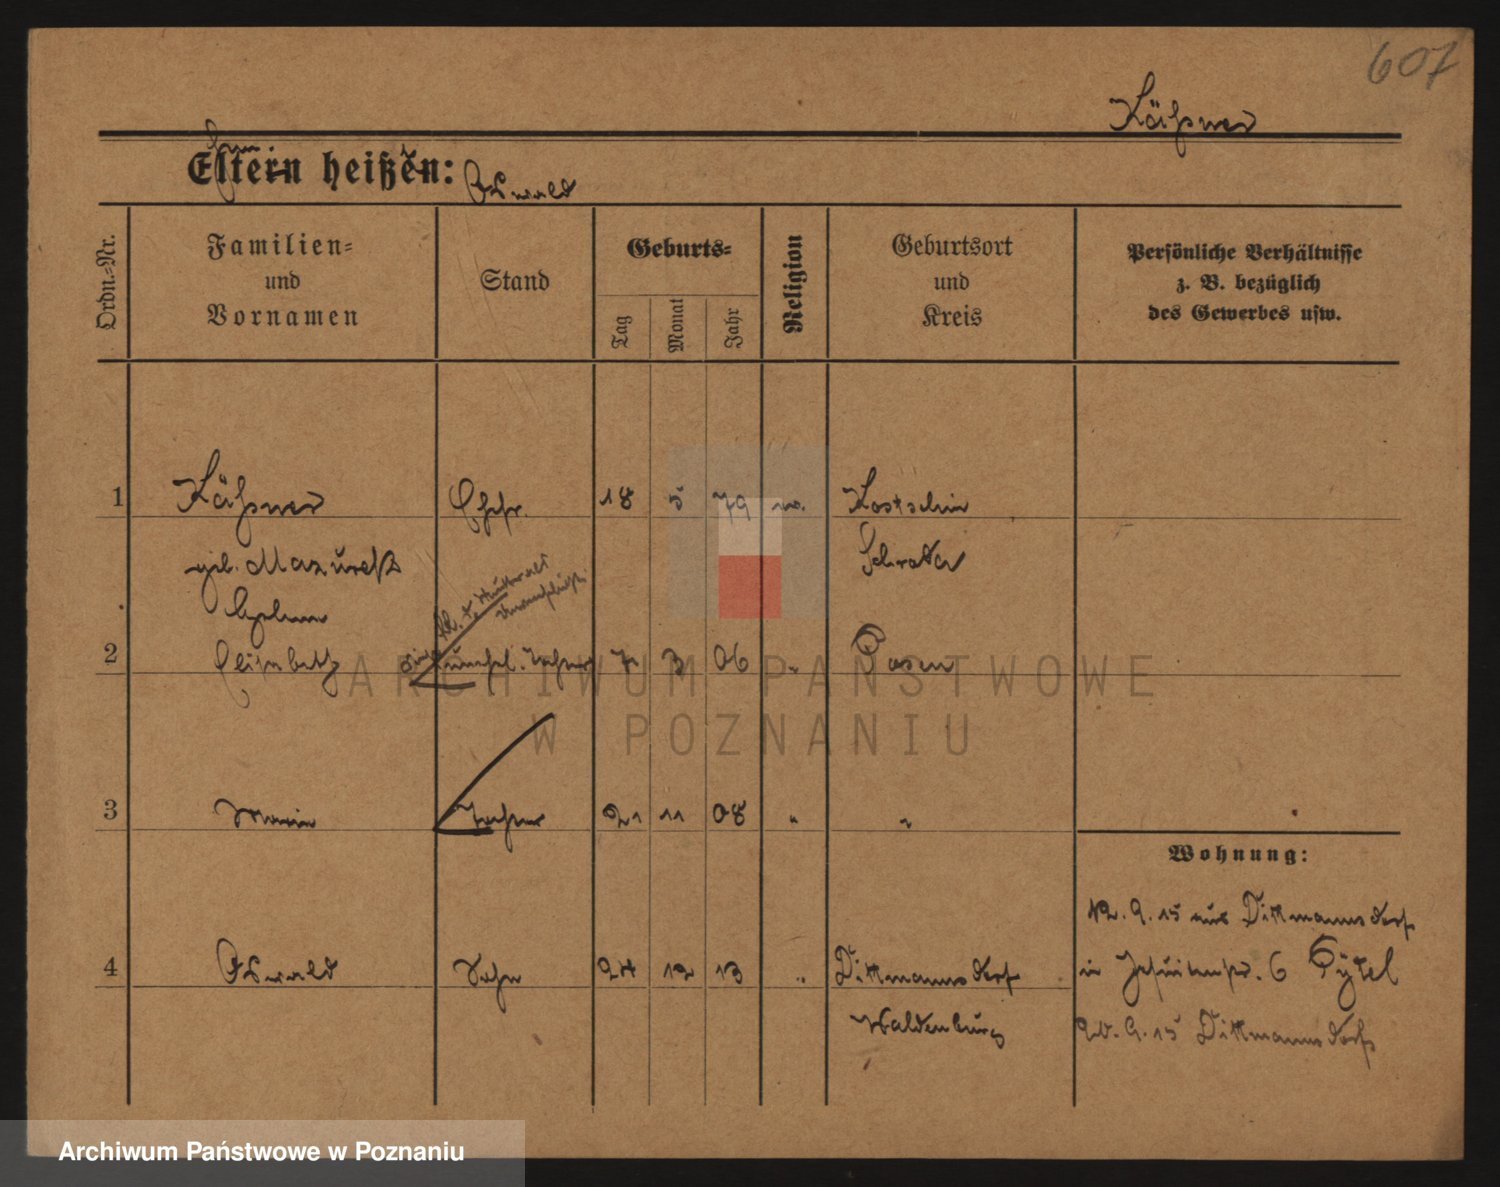 607
Käßner
Eltern heißen:
Oswald
Ordn.-Nr.
Familien-
und
Vornamen
Stand
Geburts-
Tag
Monat
Jahr
Religion
Geburtsort
und
Kreis
Persönliche Verhältnisse
z. B. bezüglich
des Gewerbes usw.
1 Käßner Ehefr. 18 5 79 Kostschin
geb. Mazurek Schroda
2 Elisabeth 7 3 06 " Posen
3 Maria Tochter 21 11 08 " "
Wohnung:
12. 9. 15 aus Dittmannsdorf
4 Oswald Sohn 24 12 13 " Dittmannsdorf in Jesuitenstr. 6
Waldenburg
9. 15 Dittmannsdorf
ARCHIWUM PAŃSTWOWE
W POZNANIU
Archiwum Państwowe w Poznaniu